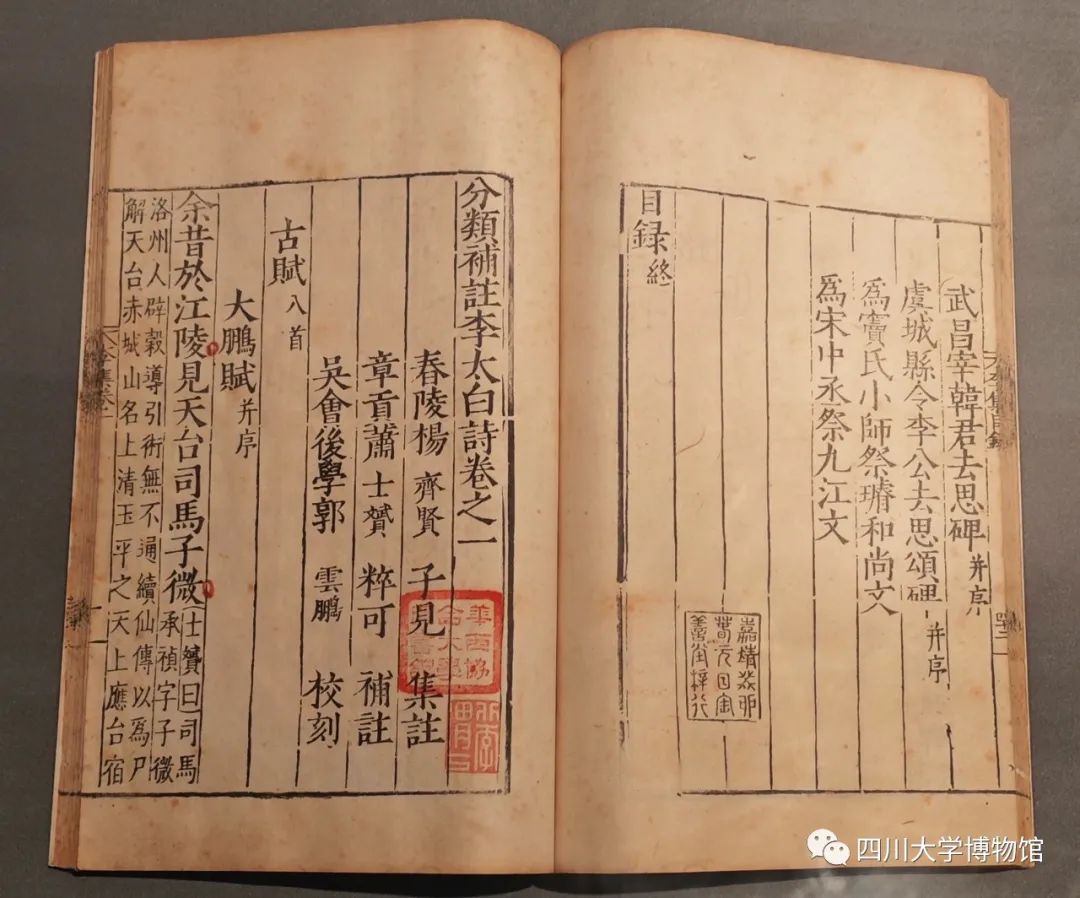 武昌宰韓君去思碑并序
虞城縣令李公去思頌碑并序
爲竇氏小師祭璿和尚文
爲宋中丞祭九江文
嘉靖癸卯
善堂梓行
目録終
分類補註李太白詩卷之一
舂陵楊齊賢子見集註
章貢蕭士贇粹可補註
吳會後學郭雲鵬校刻
華西協
合大學
古賦八首
大鵬賦并序
余昔於江陵見天台司馬子微士贇曰司馬承禎字子微
洛州人辟穀導引術無不通續仙傳以爲尸
解天台赤城山名上清玉平之天上應台宿
四川大学博物馆